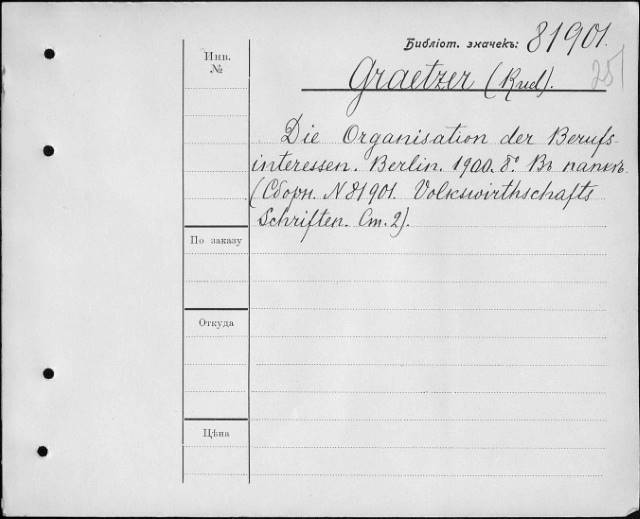 Библіот. значекъ: 81901.
25
Инв.
№
Graetzer (Rud).
Die Organisation der Berufs-
interessen. Berlin. 1900. 8° Въ папкѣ.
(Сборн. N 81901. Volkswirthschafts
Schriften. Ст. 2).
По заказу
Откуда
Цѣна